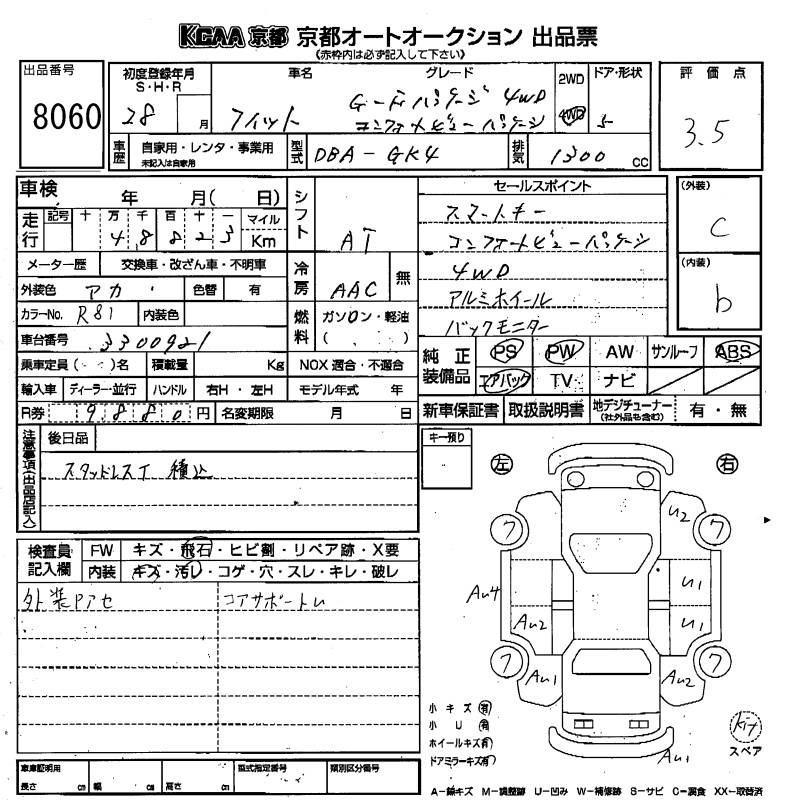 KCAA 京都 京都オートオークション 出品票
《赤枠内は必ず記入して下さい》
出品番号
8060
初度登録年月
S・H・R
28 月
車名
フィット
グレード
G-Fパッケージ 4WD
コンフォートビューパッケージ
2WD
4WD
ドア・形状
5
評価点
3.5
車歴 自家用・レンタ・事業用
未記入は自家用
型式 DBA-GK4
排気 1300 cc
車検 年 月( 日)
シフト AT
走行 記号 十 万 千 百 十 一 マイル
4 8 8 2 3 Km
メーター歴 交換車・改ざん車・不明車
冷房 AAC 無
外装色 アカ 色替 有
カラーNo. R81 内装色
燃料 ガソリン・軽油
( . )
車台番号 3300921
乗車定員( ・ )名 積載量 Kg NOX適合・不適合
輸入車 ディーラー・並行 ハンドル 右H・左H モデル年式 年
R券 9880円 名変期限 月 日
セールスポイント
スマートキー
コンフォートビューパッケージ
4WD
アルミホイール
バックモニター
(外装)
C
(内装)
b
純正装備品 PS PW AW サンルーフ ABS
エアバック TV ナビ
新車保証書 取扱説明書 地デジチューナー
(社外品も含む) 有・無
注意事項(出品店記入)
後日品
スタッドレスT 積込
キー預り
左
右
検査員記入欄 FW キズ・飛石・ヒビ割・リペア跡・X要
内装 キズ・汚レ・コゲ・穴・スレ・キレ・破レ
外装Pアセ
コアサポートU
ワ
U2
ワ
AU4
U1
AU2
U1
ワ
AU1
AU2
ワ
AU1
小キズ(有)
小 U (有)
ホイールキズ(有)
ドアミラーキズ(有)
Kit
スペア
車庫証明用
長さ cm 幅 cm 高さ cm
型式指定番号
類別区分番号
A-線キズ M-調整跡 U-凹み W-補修跡 S-サビ C-腐食 XX-取替済